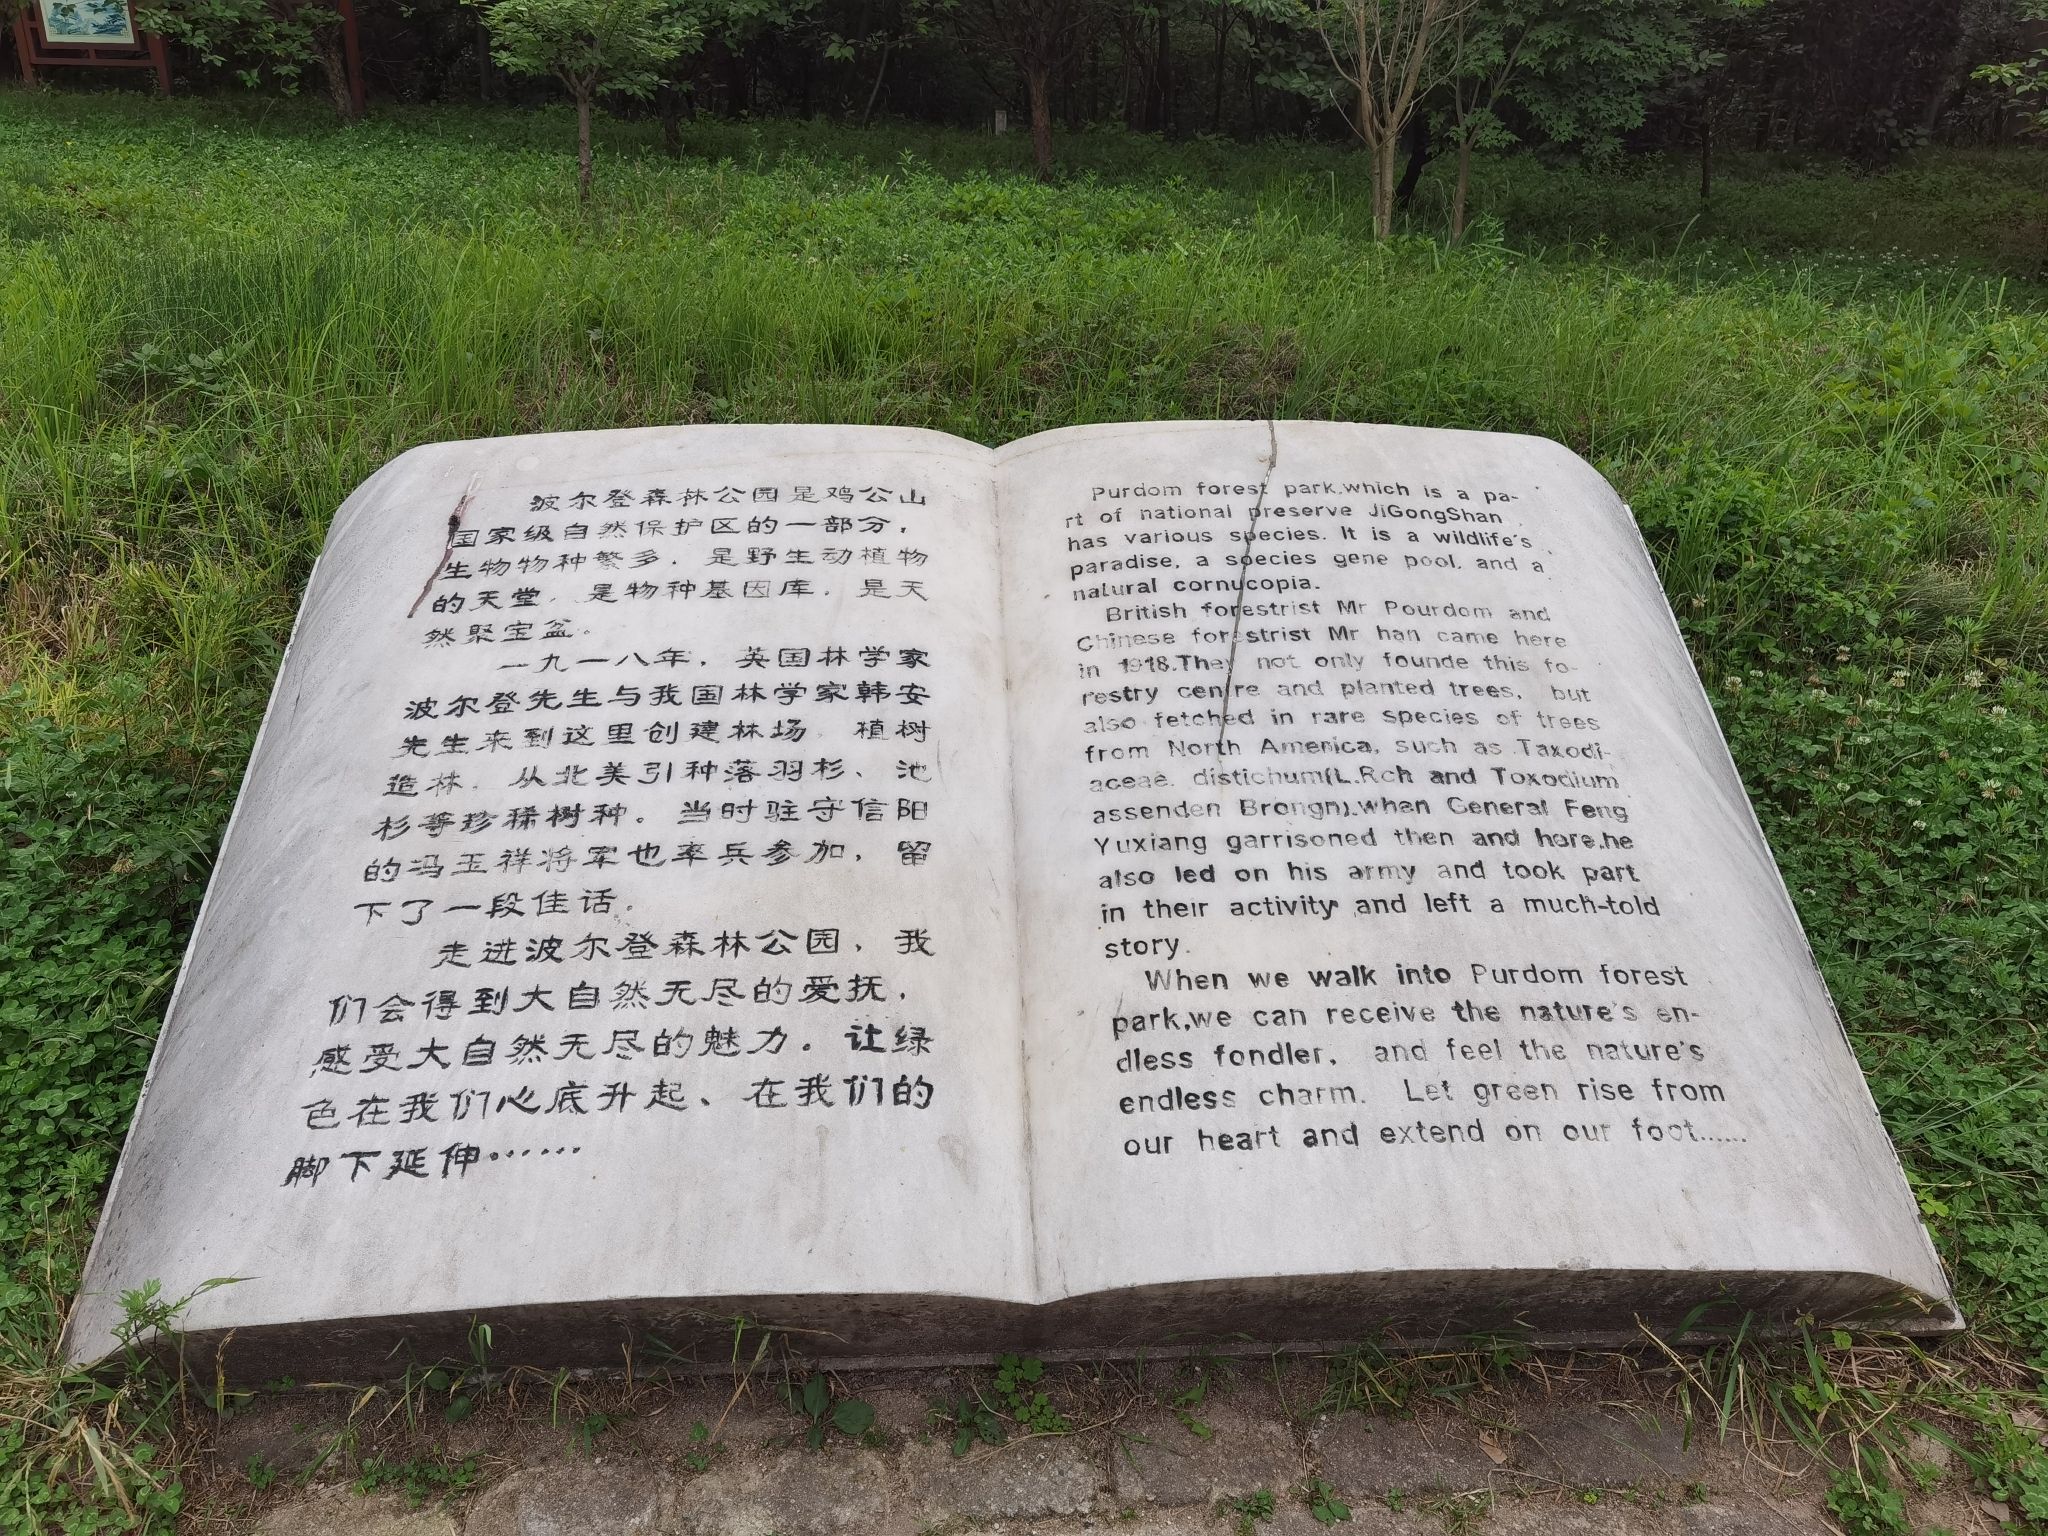 波尔登森林公园是鸡公山
国家级自然保护区的一部分，
生物物种繁多，是野生动植物
的天堂，是物种基因库，是天
然聚宝盆。
一九一八年，英国林学家
波尔登先生与我国林学家韩安
先生来到这里创建林场，植树
造林，从北美引种落羽杉、池
杉等珍稀树种。当时驻守信阳
的冯玉祥将军也率兵参加，留
下了一段佳话。
走进波尔登森林公园，我
们会得到大自然无尽的爱抚，
感受大自然无尽的魅力。让绿
色在我们心底升起、在我们的
脚下延伸……
Purdom forest park,which is a pa-
rt of national preserve JiGongShan,
has various species. It is a wildlife's
paradise, a species gene pool, and a
natural cornucopia.
British forestrist Mr Pourdom and
Chinese forestrist Mr han came here
in 1918.They not only founde this fo-
restry centre and planted trees, but
also fetched in rare species of trees
from North America, such as Taxodi-
aceae. distichum(L.Rch and Toxodium
assenden Brongn).whan General Feng
Yuxiang garrisoned then and hore,he
also led on his army and took part
in their activity and left a much-told
story.
When we walk into Purdom forest
park,we can receive the nature's en-
dless fondler, and feel the nature's
endless charm. Let green rise from
our heart and extend on our foot......